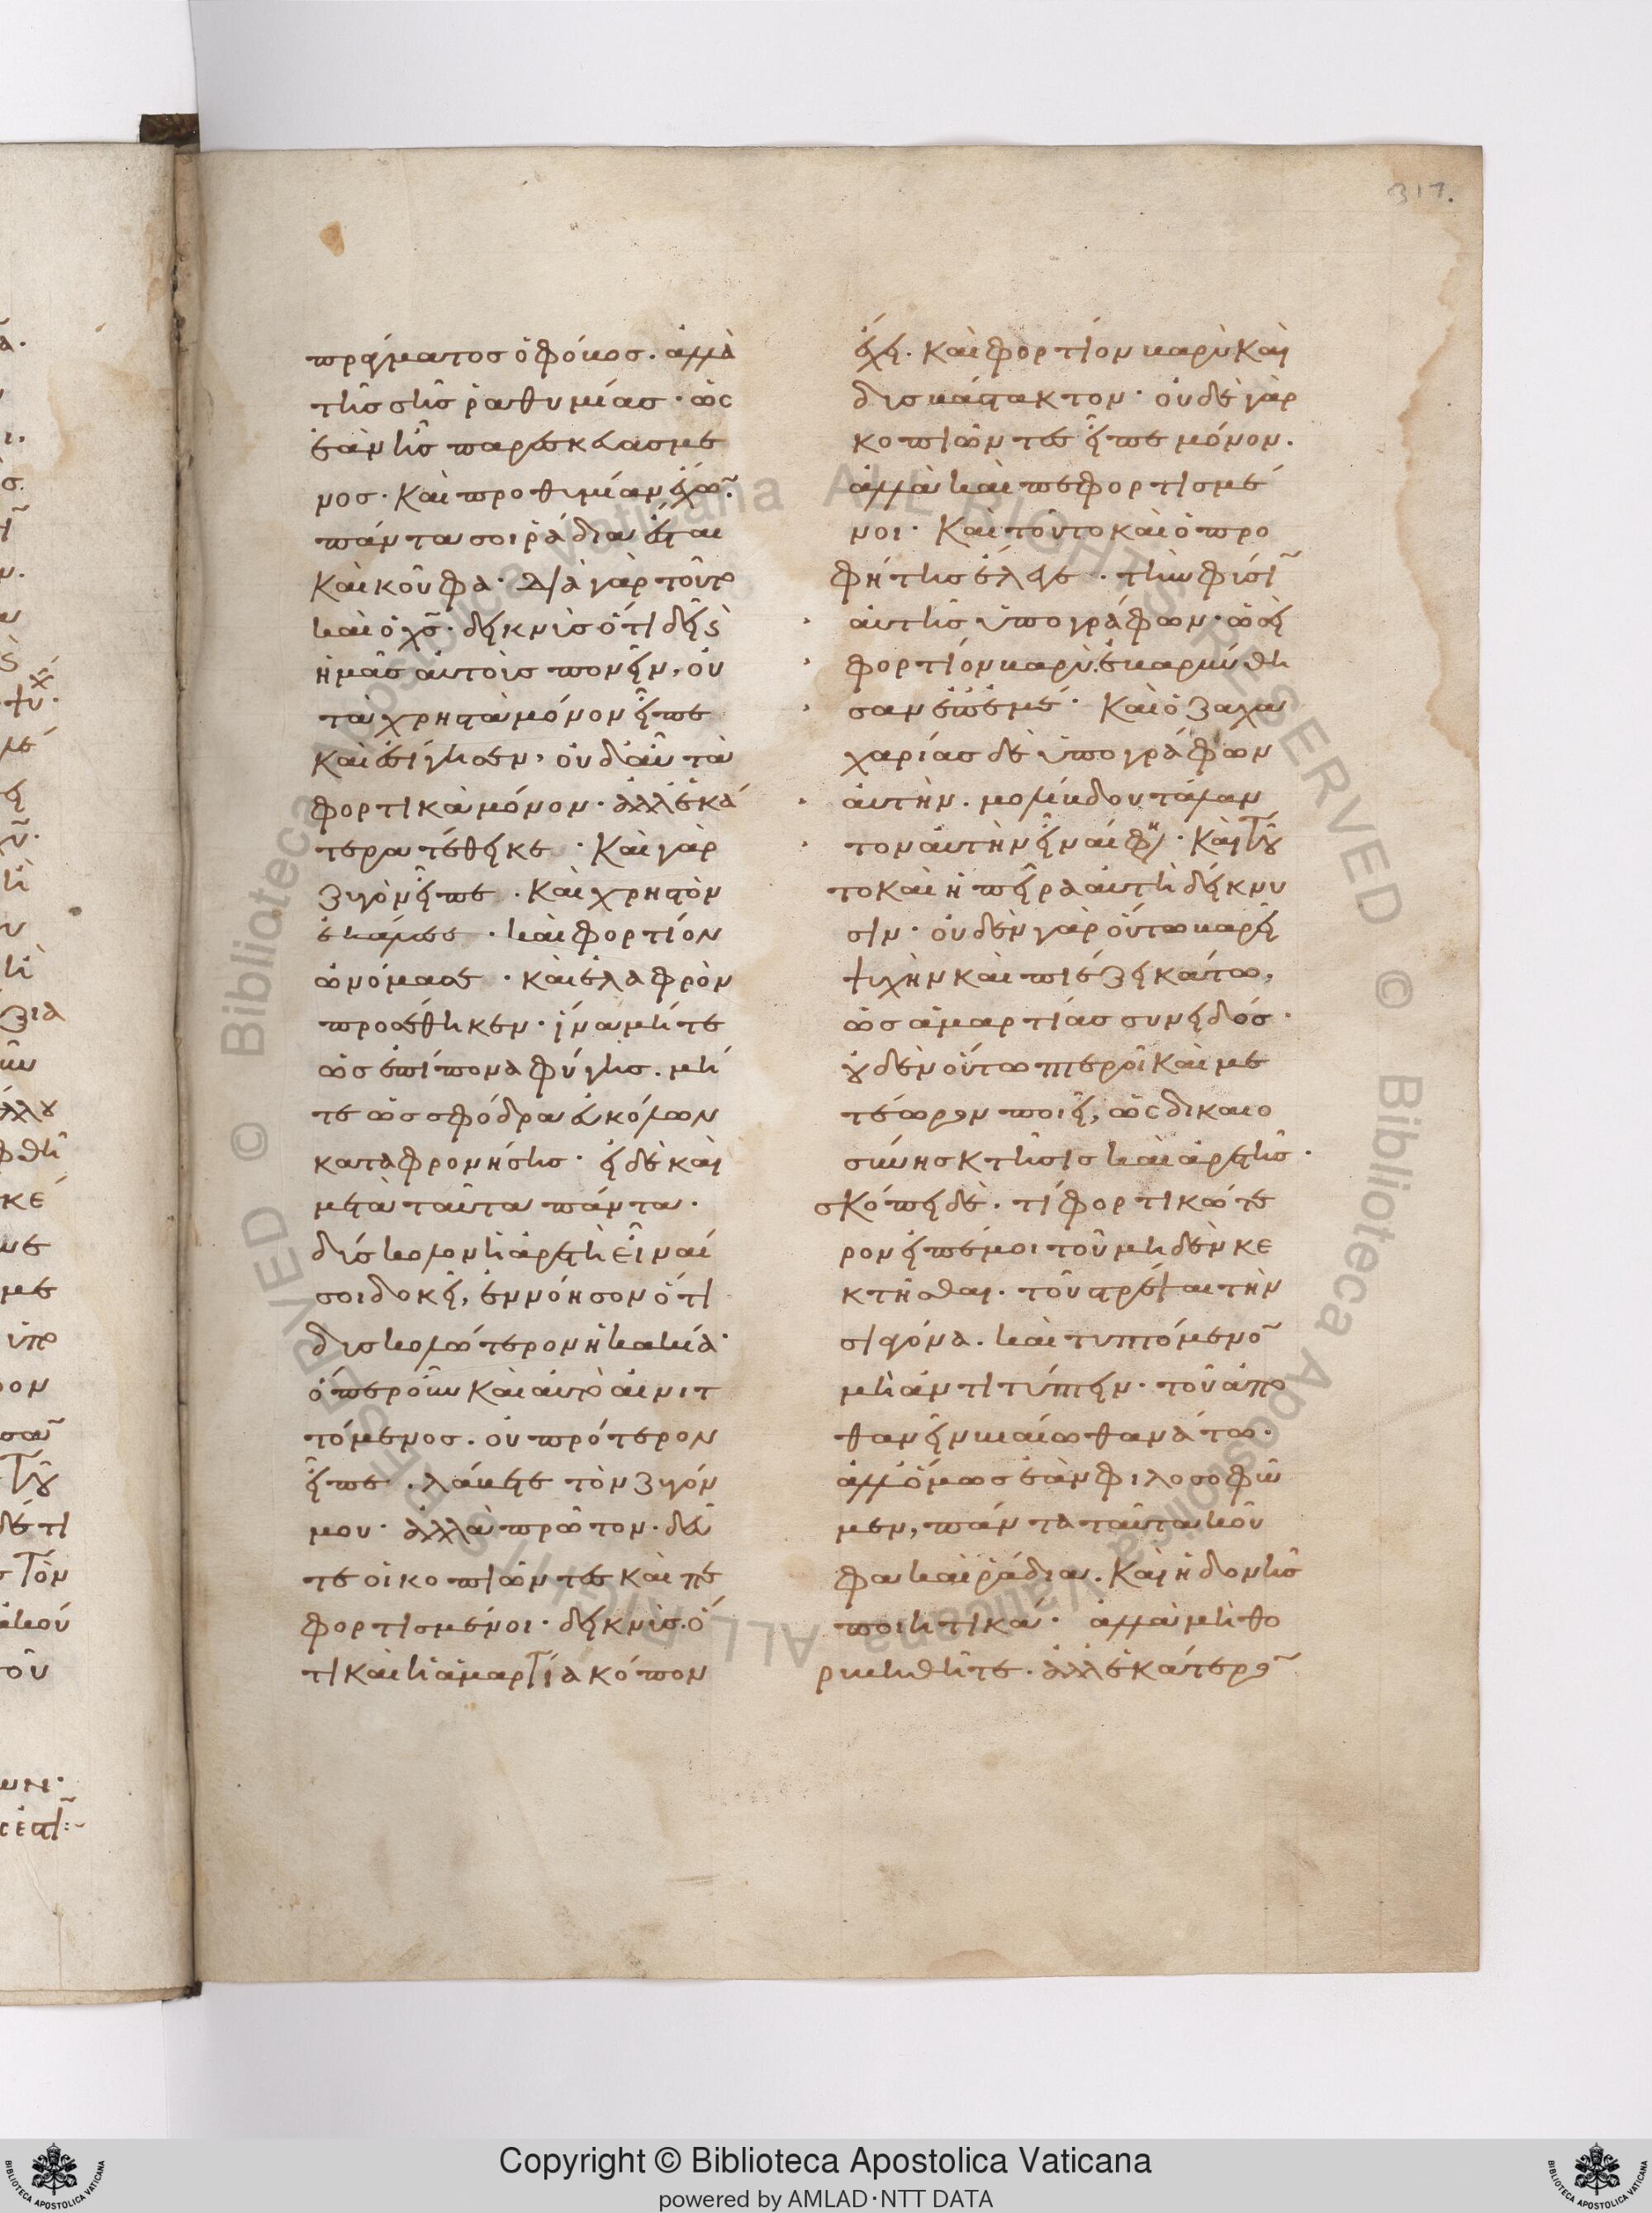 πράγματος ὁ φόβος. ἀλλὰ
τῆς σῆς ῥαθυμίας· ὡς
ἐὰν ᾖς παρεσκευασμέ
νος· καὶ προθυμίαν ἔχω~
πάντα σοι ῥάδια ἔσται
καὶ κοῦφα· διὰ γὰρ τοῦτο
καὶ ὁ χς̅· δεικνὺς ὅτι δεῖ ϛ
ἡμᾶς αὐτοὺς πονεῖν, οὐ
τὰ χρηστὰ μόνον εἶπε
καὶ ἐσίγησεν, οὐδ' αὖ τὰ
φορτικὰ μόνον· ἀλλ' ἑκά
τερα τέθεικε· καὶ γὰρ
ζυγὸν εἶπε· καὶ χρηστὸν
ἐκάλεσε· καὶ φορτίον
ὠνόμασε· καὶ ἐλαφρὸν
προσέθηκεν· ἵνα μήτε
ὡς ἐπίπονα φύγης. μή
τε ὡς σφόδρα εὐκόλων
καταφρονήσης· εἰ δὲ καὶ
μετὰ ταῦτα πάντα·
δύσκολον ἡ ἀρετὴ εἶναί
σοι δοκεῖ, ἐννόησον ὅτι
δυσκολώτερον ἡ κακία·
ὅπερ οὖν καὶ αὐτὸ αἰνιτ
τόμενος. οὐ πρότερον
εἶπε· λάβετε τὸν ζυγόν
μου· ἀλλὰ πρῶτον· δεῦ
τε οἱ κοπιῶντες καὶ πε
φορτισμένοι· δεικνὺς· ὅ
τι καὶ ἡ ἁμαρτία κόπον
317.
ἔχει. καὶ φορτίον βαρὺ καὶ
δυσβάστακτον· οὐδὲ γὰρ
κοπιῶντες εἶπε μόνον.
ἀλλὰ καὶ πεφορτισμέ
νοι· καὶ τοῦτο καὶ ὁ προ
φήτης ἔλεγε· τὴν φύσι~
αὐτῆς ὑπογράφων· ὡσεὶ
φορτίον βαρὺ. ἐβαρύνθη
σαν ἐπ' ἐμέ· καὶ ὁ ζαχα
χαρίας δὲ ὑπογράφων
αὐτὴν. μολίβδου τάλαν
τον αὐτὴν εἶναί φη· καὶ τοῦ
το καὶ ἡ πεῖρα αὐτὴ δείκνυ
σιν· οὐδὲν γὰρ οὕτω βαρεῖ
ψυχὴν καὶ πιέζει κάτω,
ὡς ἁμαρτίας συνειδός·
οὐδὲν οὕτω πτεροῖ καὶ με
τέωρον ποιεῖ, ὡς δικαιο
σύνης κτῆσις καὶ ἀρετῆς·
σκόπει δὲ· τί φορτικώτε
ρον εἰπέ μοι τοῦ μηδὲν κε
κτῆσθαι· τοῦ στρέψαι τὴν
σιαγόνα. καὶ τυπτόμενο~
μὴ ἀντιτύπτειν· τοῦ ἀπο
θανεῖν βιαίω θανάτω·
ἀλλ' ὅμως ἐὰν φιλοσοφῶ
μεν, πάντα ταῦτα κοῦ
φα καὶ ῥάδια. καὶ ἡδονῆς
ποιητικά· ἀλλὰ μὴ θο
ρυβηθῆτε· ἀλλ' ἑκάτερο~
Copyright © Biblioteca Apostolica Vaticana
powered by AMLAD·NTT DATA